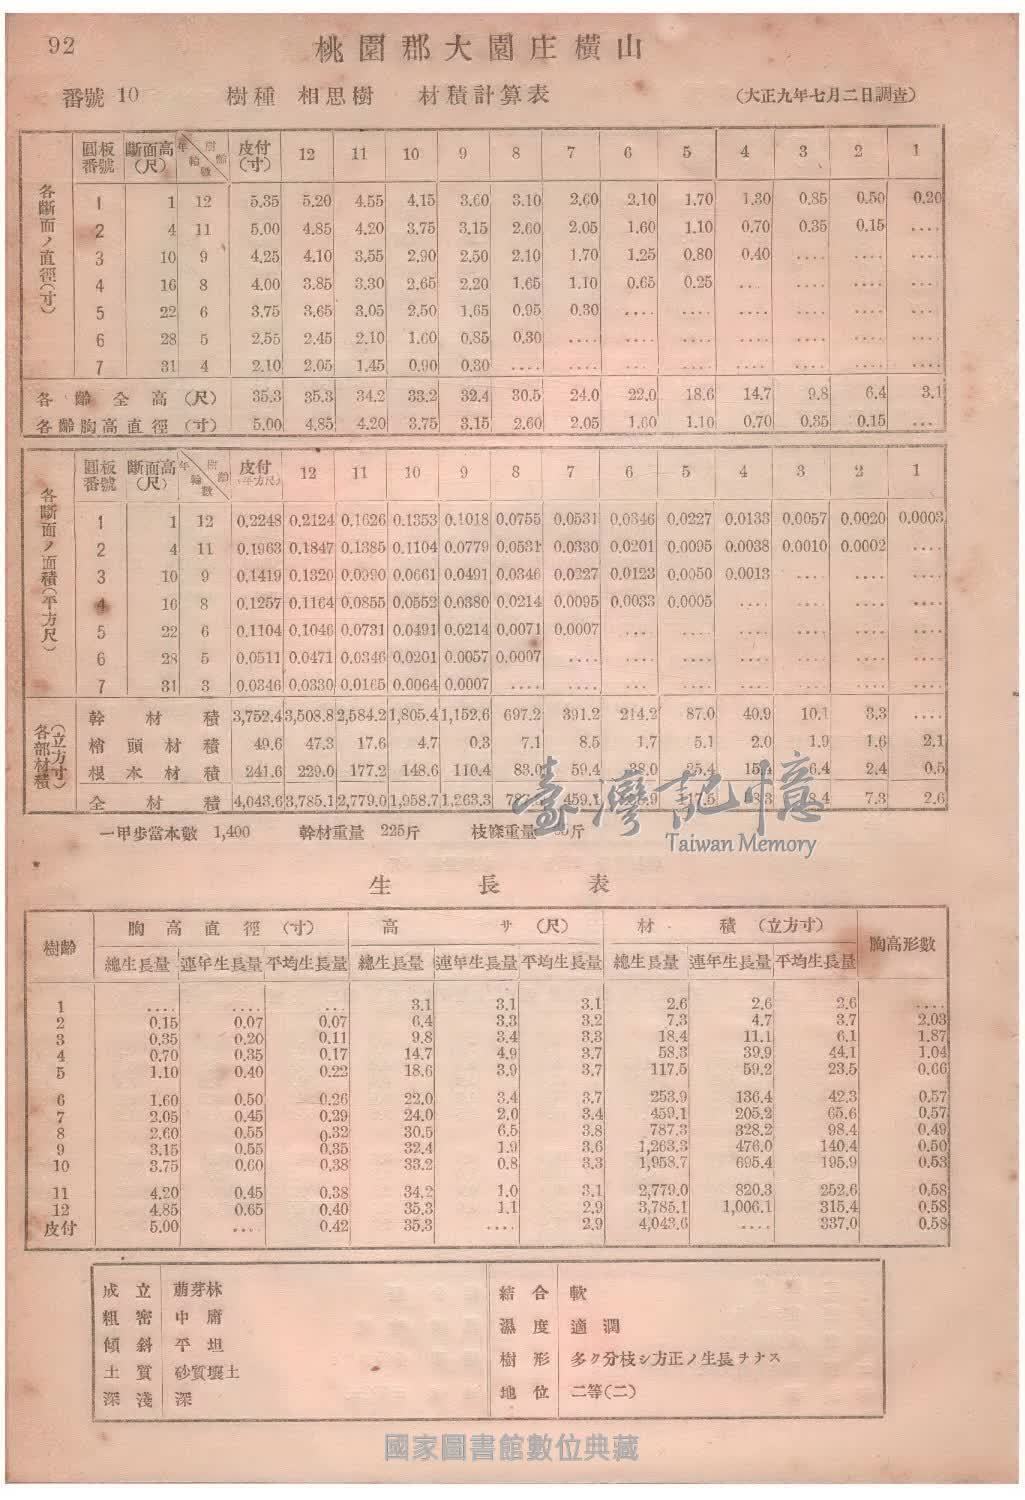 92
桃園郡大園庄橫山
番號 10 樹種 相思樹 材積計算表 (大正九年七月二日調查)
各斷面ノ直徑(寸)
圓板番號 斷面高(尺) 年輪數 樹齡 皮付(寸) 12 11 10 9 8 7 6 5 4 3 2 1
1 1 12 5.35 5.20 4.55 4.15 3.60 3.10 2.60 2.10 1.70 1.30 0.85 0.50 0.20
2 4 11 5.00 4.85 4.20 3.75 3.15 2.60 2.05 1.60 1.10 0.70 0.35 0.15 ....
3 10 9 4.25 4.10 3.55 2.90 2.50 2.10 1.70 1.25 0.80 0.40 .... .... ....
4 16 8 4.00 3.85 3.30 2.65 2.20 1.65 1.10 0.65 0.25 .... .... .... ....
5 22 6 3.75 3.65 3.05 2.50 1.65 0.95 0.30 .... .... .... .... .... ....
6 28 5 2.55 2.45 2.10 1.60 0.85 0.30 .... .... .... .... .... .... ....
7 31 4 2.10 2.05 1.45 0.90 0.30 .... .... .... .... .... .... .... ....
各齡全高(尺) 35.3 35.3 34.2 33.2 32.4 30.5 24.0 22.0 18.6 14.7 9.8 6.4 3.1
各齡胸高直徑(寸) 5.00 4.85 4.20 3.75 3.15 2.60 2.05 1.60 1.10 0.70 0.35 0.15 ...
各斷面ノ面積(平方尺)
圓板番號 斷面高(尺) 年輪數 樹齡 皮付(平方尺) 12 11 10 9 8 7 6 5 4 3 2 1
1 1 12 0.2248 0.2124 0.1626 0.1353 0.1018 0.0755 0.0531 0.0346 0.0227 0.0133 0.0057 0.0020 0.0003
2 4 11 0.1963 0.1847 0.1385 0.1104 0.0779 0.0531 0.0330 0.0201 0.0095 0.0038 0.0010 0.0002 ....
3 10 9 0.1419 0.1320 0.0990 0.0661 0.0491 0.0346 0.0227 0.0123 0.0050 0.0013 .... .... ....
4 16 8 0.1257 0.1164 0.0855 0.0552 0.0380 0.0214 0.0095 0.0033 0.0005 .... .... .... ....
5 22 6 0.1104 0.1046 0.0731 0.0491 0.0214 0.0071 0.0007 ... .... .... .... .... ....
6 28 5 0.0511 0.0471 0.0346 0.0201 0.0057 0.0007 .... .... .... .... .... .... ....
7 31 3 0.0346 0.0330 0.0165 0.0064 0.0007 .... .... .... .... .... .... .... ....
各部材積(立方寸)
幹材積 3,752.4 3,508.8 2,584.2 1,805.4 1,152.6 697.2 391.2 214.2 87.0 40.9 10.1 3.3 ....
梢頭材積 49.6 47.3 17.6 4.7 0.3 7.1 8.5 1.7 5.1 2.0 1.9 1.6 2.1
根本材積 241.6 229.0 177.2 148.6 110.4 83.0 59.4 38.0 25.4 6.4 2.4 0.5
全材積 4,043.6 3,785.1 2,779.0 1,958.7 1,263.3 459.1 7.3 2.6
臺灣記憶
Taiwan Memory
一甲步當本數 1,400 幹材重量 225斤 枝條重量 斤
生長表
樹齡 胸高直徑(寸) 高サ(尺) 材積(立方寸) 胸高形數
總生長量 連年生長量 平均生長量 總生長量 連年生長量 平均生長量 總生長量 連年生長量 平均生長量
1 .... .... ... 3.1 3.1 3.1 2.6 2.6 2.6 ....
2 0.15 0.07 0.07 6.4 3.3 3.2 7.3 4.7 3.7 2.03
3 0.35 0.20 0.11 9.8 3.4 3.3 18.4 11.1 6.1 1.87
4 0.70 0.35 0.17 14.7 4.9 3.7 58.3 39.9 44.1 1.04
5 1.10 0.40 0.22 18.6 3.9 3.7 117.5 59.2 23.5 0.66
6 1.60 0.50 0.26 22.0 3.4 3.7 253.9 136.4 42.3 0.57
7 2.05 0.45 0.29 24.0 2.0 3.4 459.1 205.2 65.6 0.57
8 2.60 0.55 0.32 30.5 6.5 3.8 787.3 328.2 98.4 0.49
9 3.15 0.55 0.35 32.4 1.9 3.6 1,263.3 476.0 140.4 0.50
10 3.75 0.60 0.38 33.2 0.8 3.3 1,958.7 695.4 195.9 0.53
11 4.20 0.45 0.38 34.2 1.0 3.1 2,779.0 820.3 252.6 0.58
12 4.85 0.65 0.40 35.3 1.1 2.9 3,785.1 1,006.1 315.4 0.58
皮付 5.00 .... 0.42 35.3 .... 2.9 4,043.6 .... 337.0 0.58
成立 萠芽林
粗密 中庸
傾斜 平坦
土質 砂質壤土
深淺 深
結合 軟
濕度 適潤
樹形 多ク分枝シ方正ノ生長ヲナス
地位 二等(二)
國家圖書館數位典藏